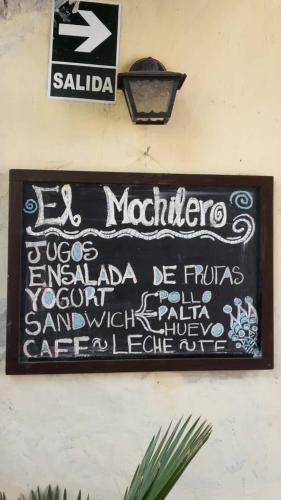 SALIDA
El Mochilero
JUGOS
ENSALADA DE FRUTAS
YOGURT POLLO
SANDWICH PALTA
HUEVO
CAFE ~ LECHE ~ TE